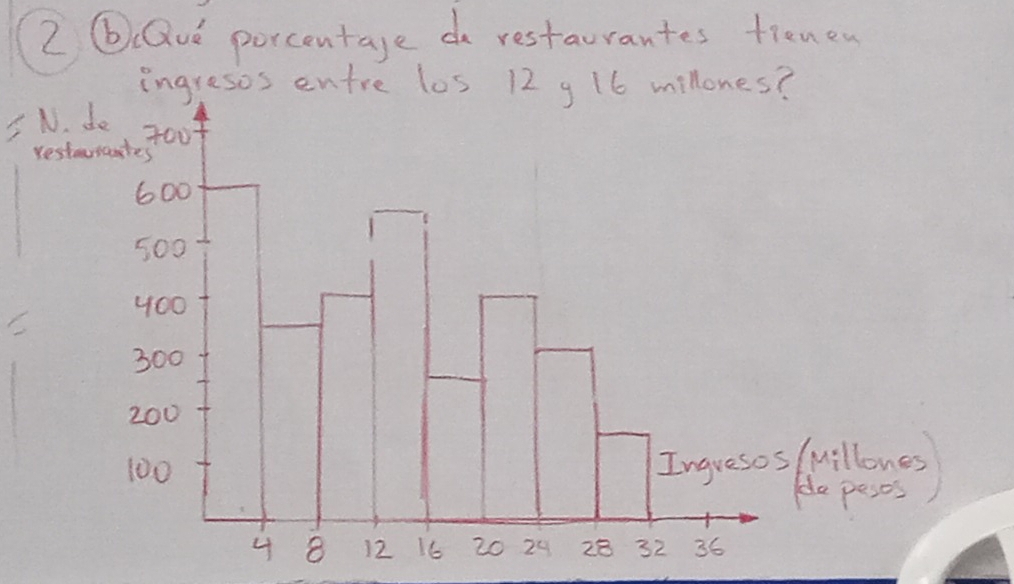 2 b) ¿Qué porcentaje de restaurantes tienen
ingresos entre los 12 y 16 millones?
N. de
restaurantes
700
600
500
400
300
200
100
Ingresos (Millones
de pesos)
4 8 12 16 20 24 28 32 36